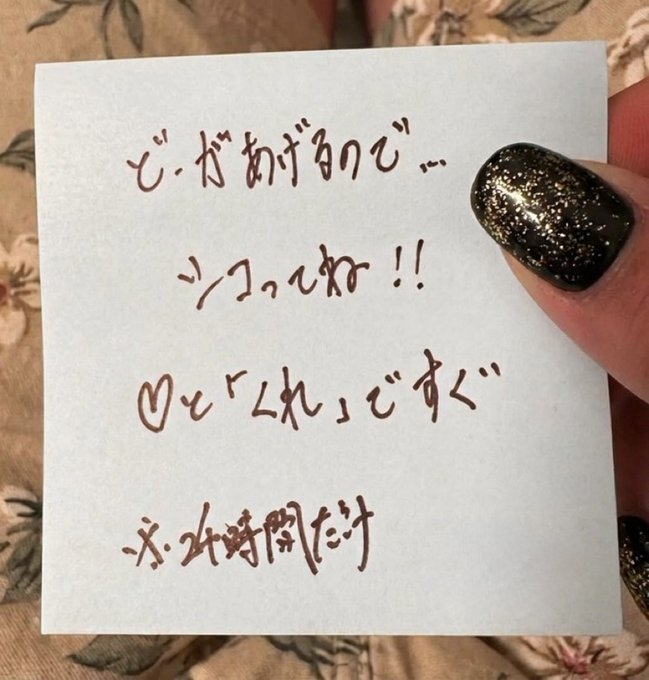 ど.があげるので...
シコってね!!
♡と「くれ」ですぐ
※.24時間だけ